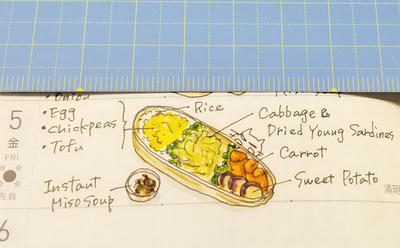 • Onion
• Egg
• Chickpeas
• Tofu
Rice
Cabbage &
Dried Young Sardines
Carrot
Sweet Potato
Instant
Miso Soup
5
金
FRI
先負
清明
6